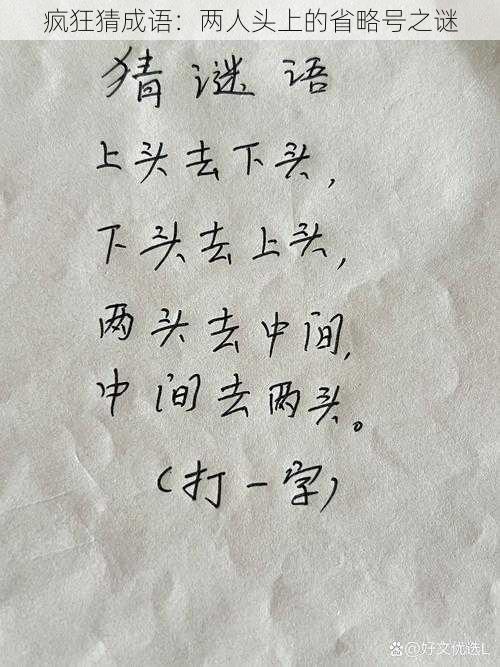 疯狂猜成语：两人头上的省略号之谜
猜谜语
上头去下头，
下头去上头，
两头去中间，
中间去两头。
（打一字）
@好文优选L